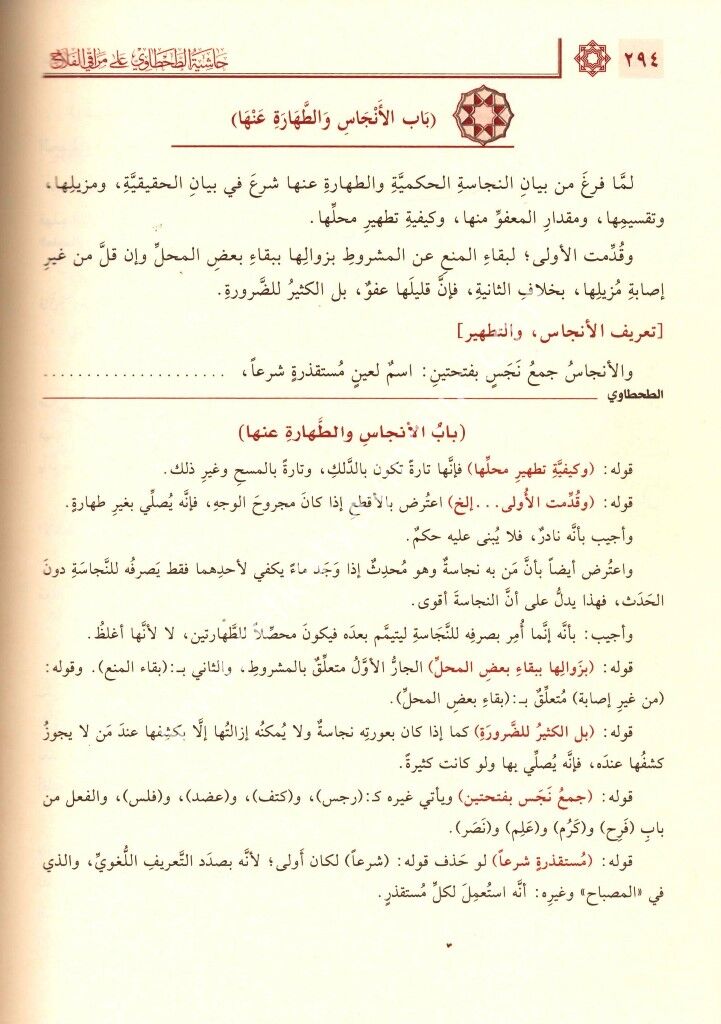 ٢٩٤
حَاشِيَةُ الطَّحْطَاوِيّ عَلَى مَرَاقِي الفَلَاحِ
(بَاب الأَنْجَاسِ وَالطَّهَارَةِ عَنْهَا)
لمَّا فرغَ من بيانِ النجاسةِ الحكميَّةِ والطهارةِ عنها شرعَ في بيانِ الحقيقيَّةِ، ومزيلِها،
وتقسيمِها، ومقدارِ المعفوِّ منها، وكيفيةِ تطهيرِ محلِّها.
وقُدِّمت الأولى؛ لبقاءِ المنعِ عن المشروطِ بزوالِها ببقاءِ بعضِ المحلِّ وإن قلَّ من غيرِ
إصابةِ مُزيلِها، بخلافِ الثانيةِ، فإنَّ قليلَها عفوٌ، بل الكثيرُ للضَّرورةِ.
[تعريف الأنجاس، والتطهير]
والأنجاسُ جمعُ نَجَسٍ بفتحتينِ: اسمٌ لعينٍ مُستقذرةٍ شرعاً، .....................
الطحطاوي
(بابُ الأنجاسِ والطَّهارةِ عنها)
قوله: (وكيفيَّةِ تطهيرِ محلِّها) فإنَّها تارةً تكون بالدَّلكِ، وتارةً بالمسحِ وغيرِ ذلك.
قوله: (وقُدِّمت الأُولى...إلخ) اعتُرض بالأقطعِ إذا كانَ مجروحَ الوجهِ، فإنَّه يُصلِّي بغيرِ طهارةٍ.
وأجيب بأنَّه نادرٌ، فلا يُبنى عليه حكمٌ.
واعتُرض أيضاً بأنَّ مَن به نجاسةٌ وهو مُحدِثٌ إذا وَجَد ماءً يكفي لأحدِهما فقط يَصرفُه للنَّجاسَةِ دونَ
الحَدَث، فهذا يدلُّ على أنَّ النجاسةَ أقوى.
وأجيب: بأنَّه إنَّما أُمِر بصرفِه للنَّجَاسةِ ليتيمَّم بعدَه فيكونَ محصِّلاً للطَّهارتين، لا لأنَّها أغلظُ.
قوله: (بزَوالِها ببقاءِ بعضِ المحلِّ) الجارُّ الأوَّلُ متعلِّقٌ بالمشروطِ، والثاني بـ:(بقاء المنع). وقوله:
(من غيرِ إصابة) مُتعلِّقٌ بـ:(بقاءِ بعضِ المحلِّ).
قوله: (بل الكثيرُ للضَّرورَةِ) كما إذا كان بعورتِه نجاسةٌ ولا يُمكنُه إزالتُها إلَّا بكشفِها عندَ مَن لا يجوزُ
كشفُها عندَه، فإنَّه يُصلِّي بها ولو كانت كثيرةً.
قوله: (جمعُ نَجَس بفتحتين) ويأتي غيره كـ:(رجس)، و(كتف)، و(عضد)، و(فلس)، والفعل من
بابِ (فَرِح) و(كَرُم) و(عَلِم) و(نَصَر).
قوله: (مُستقذرةٍ شرعاً) لو حَذف قوله: (شرعاً) لكان أَولى؛ لأنَّه بصدَد التَّعريفِ اللُّغويِّ، والذي
في «المصباح» وغيرِه: أنَّه استُعمِلَ لكلِّ مُستقذرٍ.